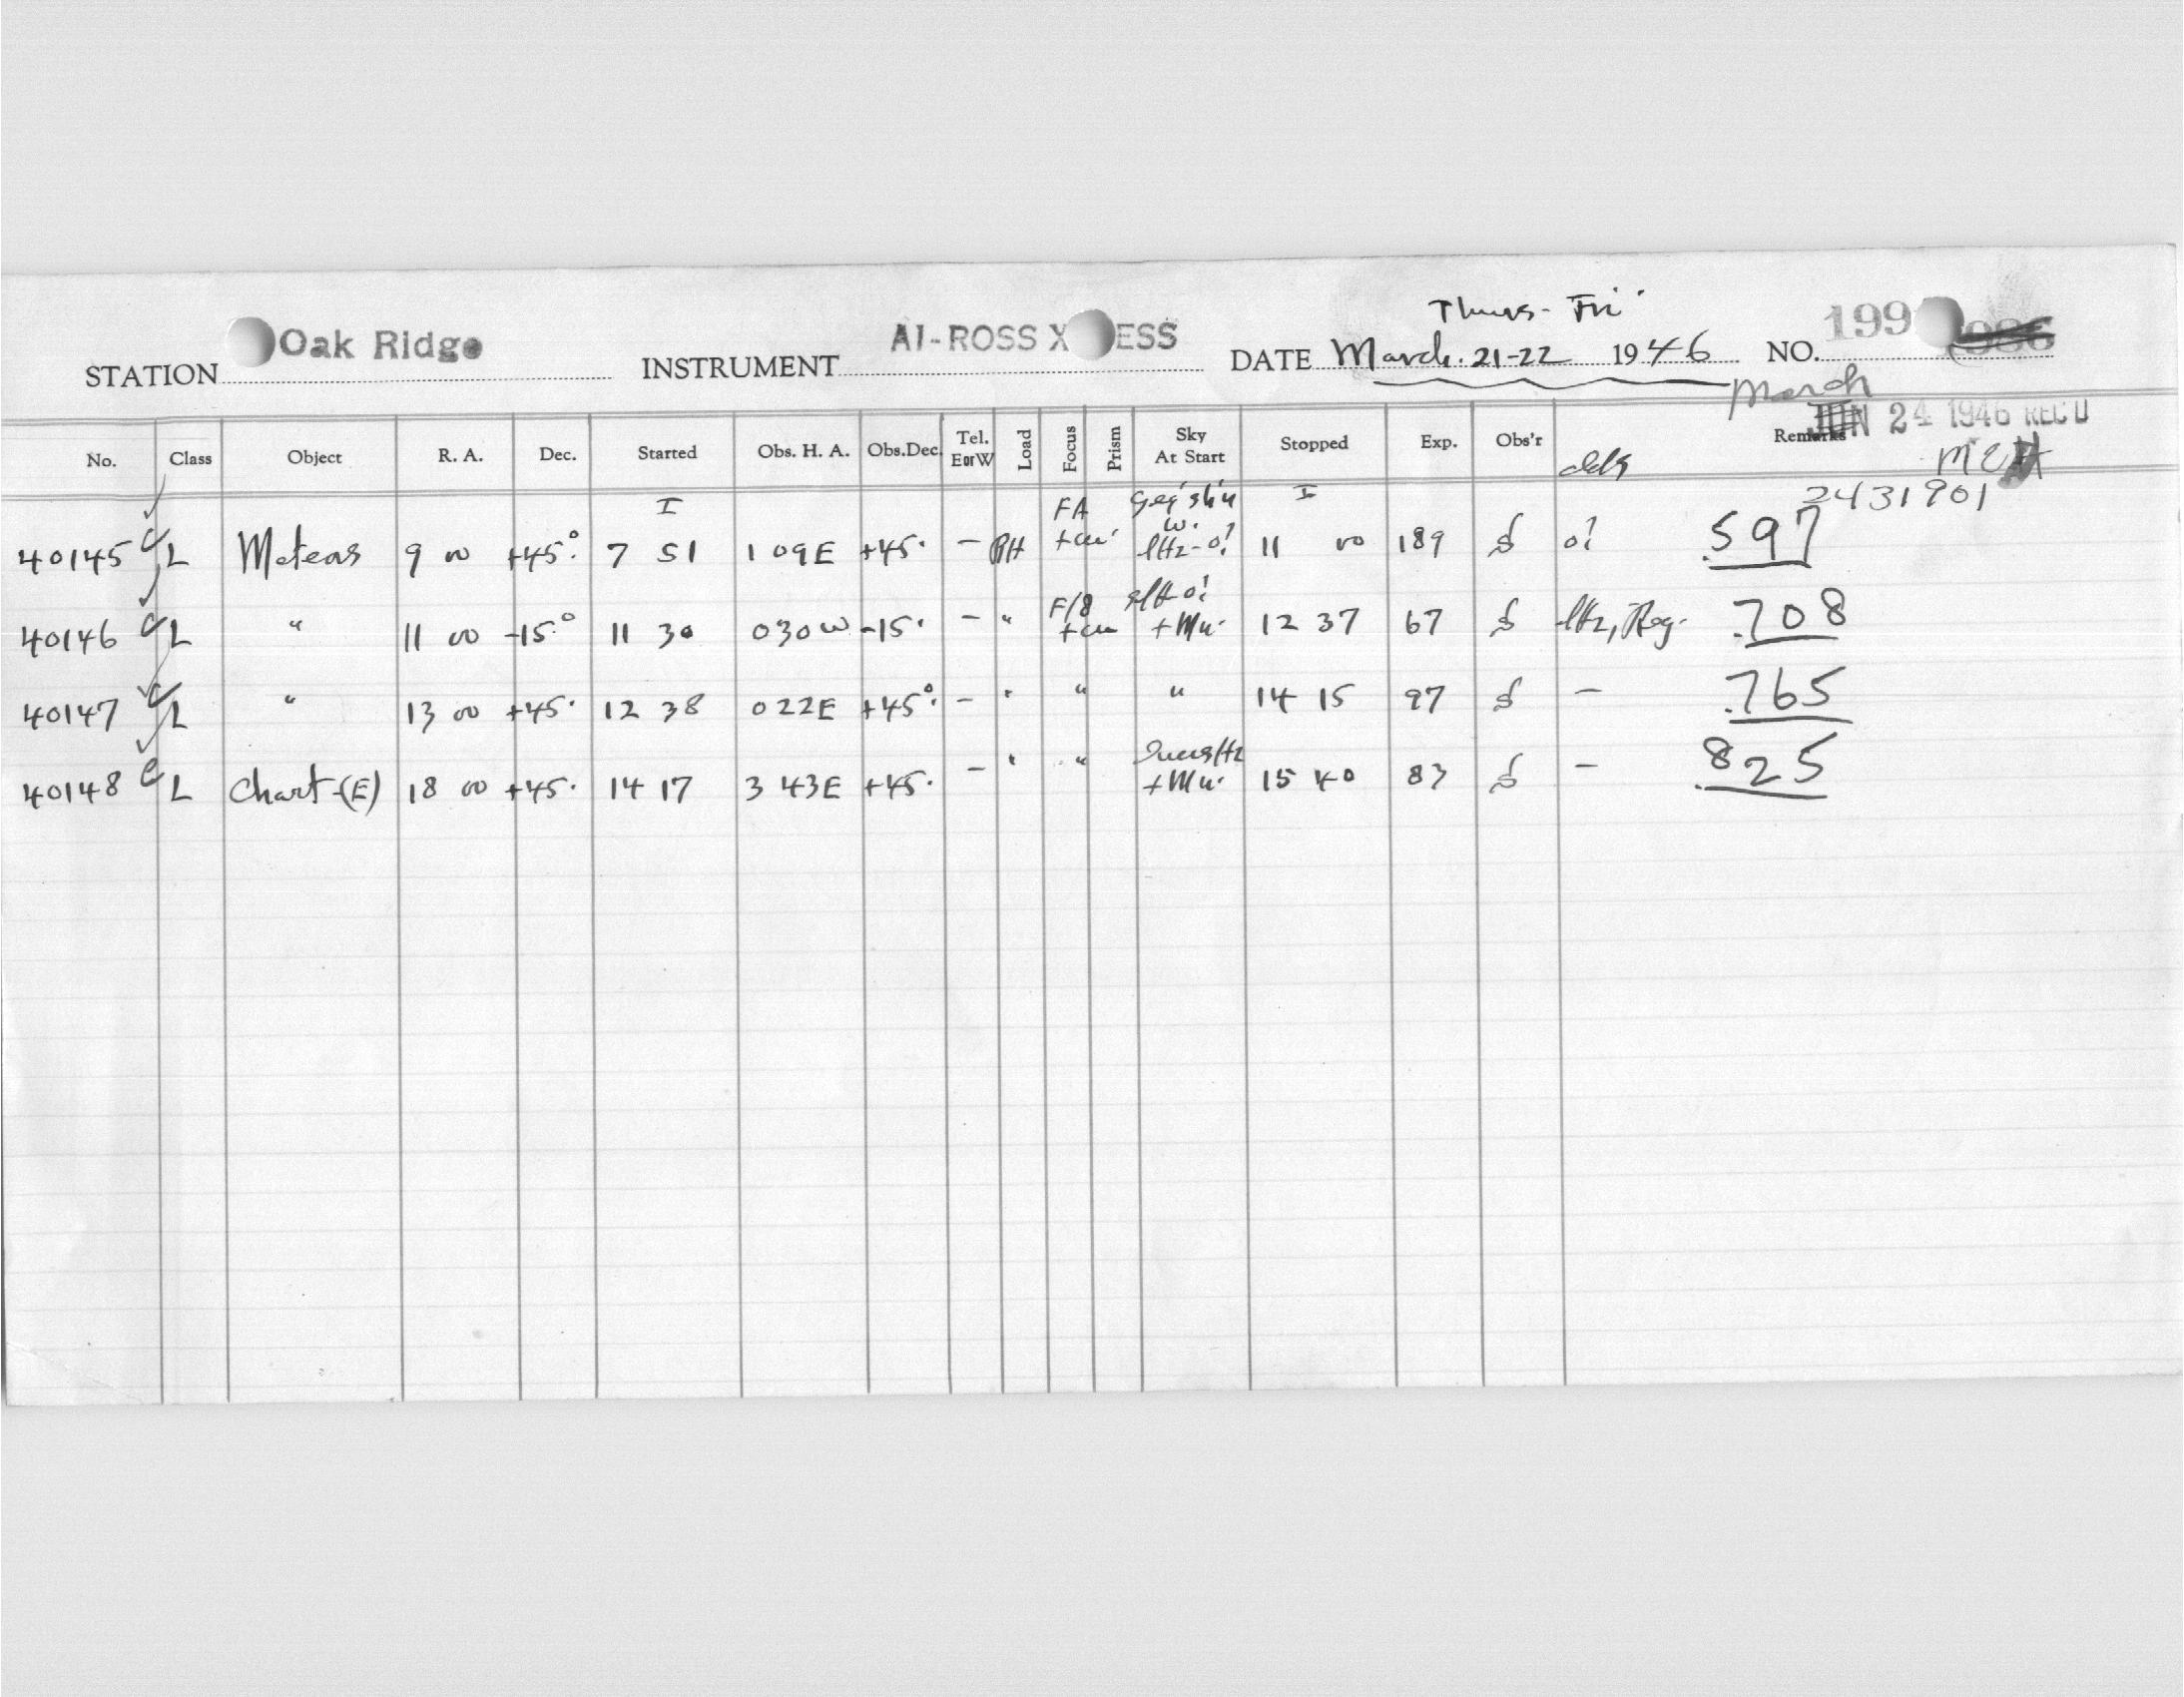 Thurs-Fri
STATION Oak Ridge INSTRUMENT AI-ROSS X ESS DATE March. 21-22 1946 NO. 199
March
JUN 24 1946 REC'D
No. Class Object R. A. Dec. Started Obs. H. A. Obs.Dec. Tel. E or W Load Focus Prism Sky At Start Stopped Exp. Obs'r Remarks
2431901
40145 L Meteors 9 00 +45° 7 51 1 09E +45° - FA 11 00 189 0! .597
40146 L " 11 00 -15° 11 30 0 30W -15° - " F/8 12 37 67 .708
40147 L " 13 00 +45° 12 38 0 22E +45° - " " " 14 15 97 - .765
40148 L Chart-(E) 18 00 +45° 14 17 3 43E +45° - " " 15 40 83 - .825